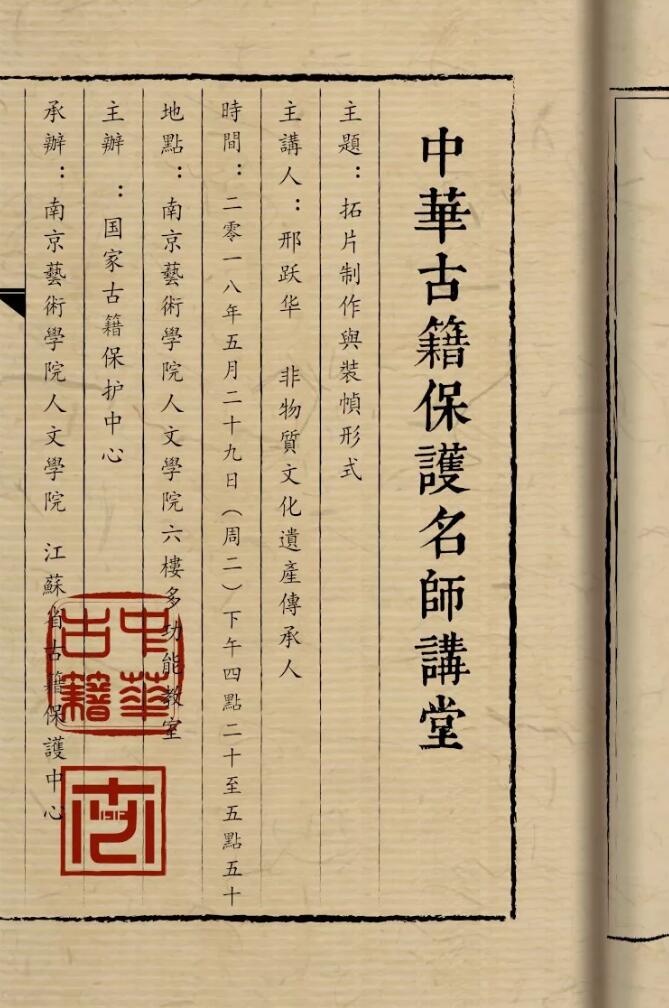 中華古籍保護名師講堂
主題：拓片制作與裝幀形式
主講人：邢跃华　非物質文化遺產傳承人
時間：二零一八年五月二十九日（周二）下午四點二十至五點五十
地點：南京藝術學院人文學院六樓多功能教室
主辦：国家古籍保护中心
承辦：南京藝術學院人文學院　江蘇省古籍保護中心
中華古籍
1912